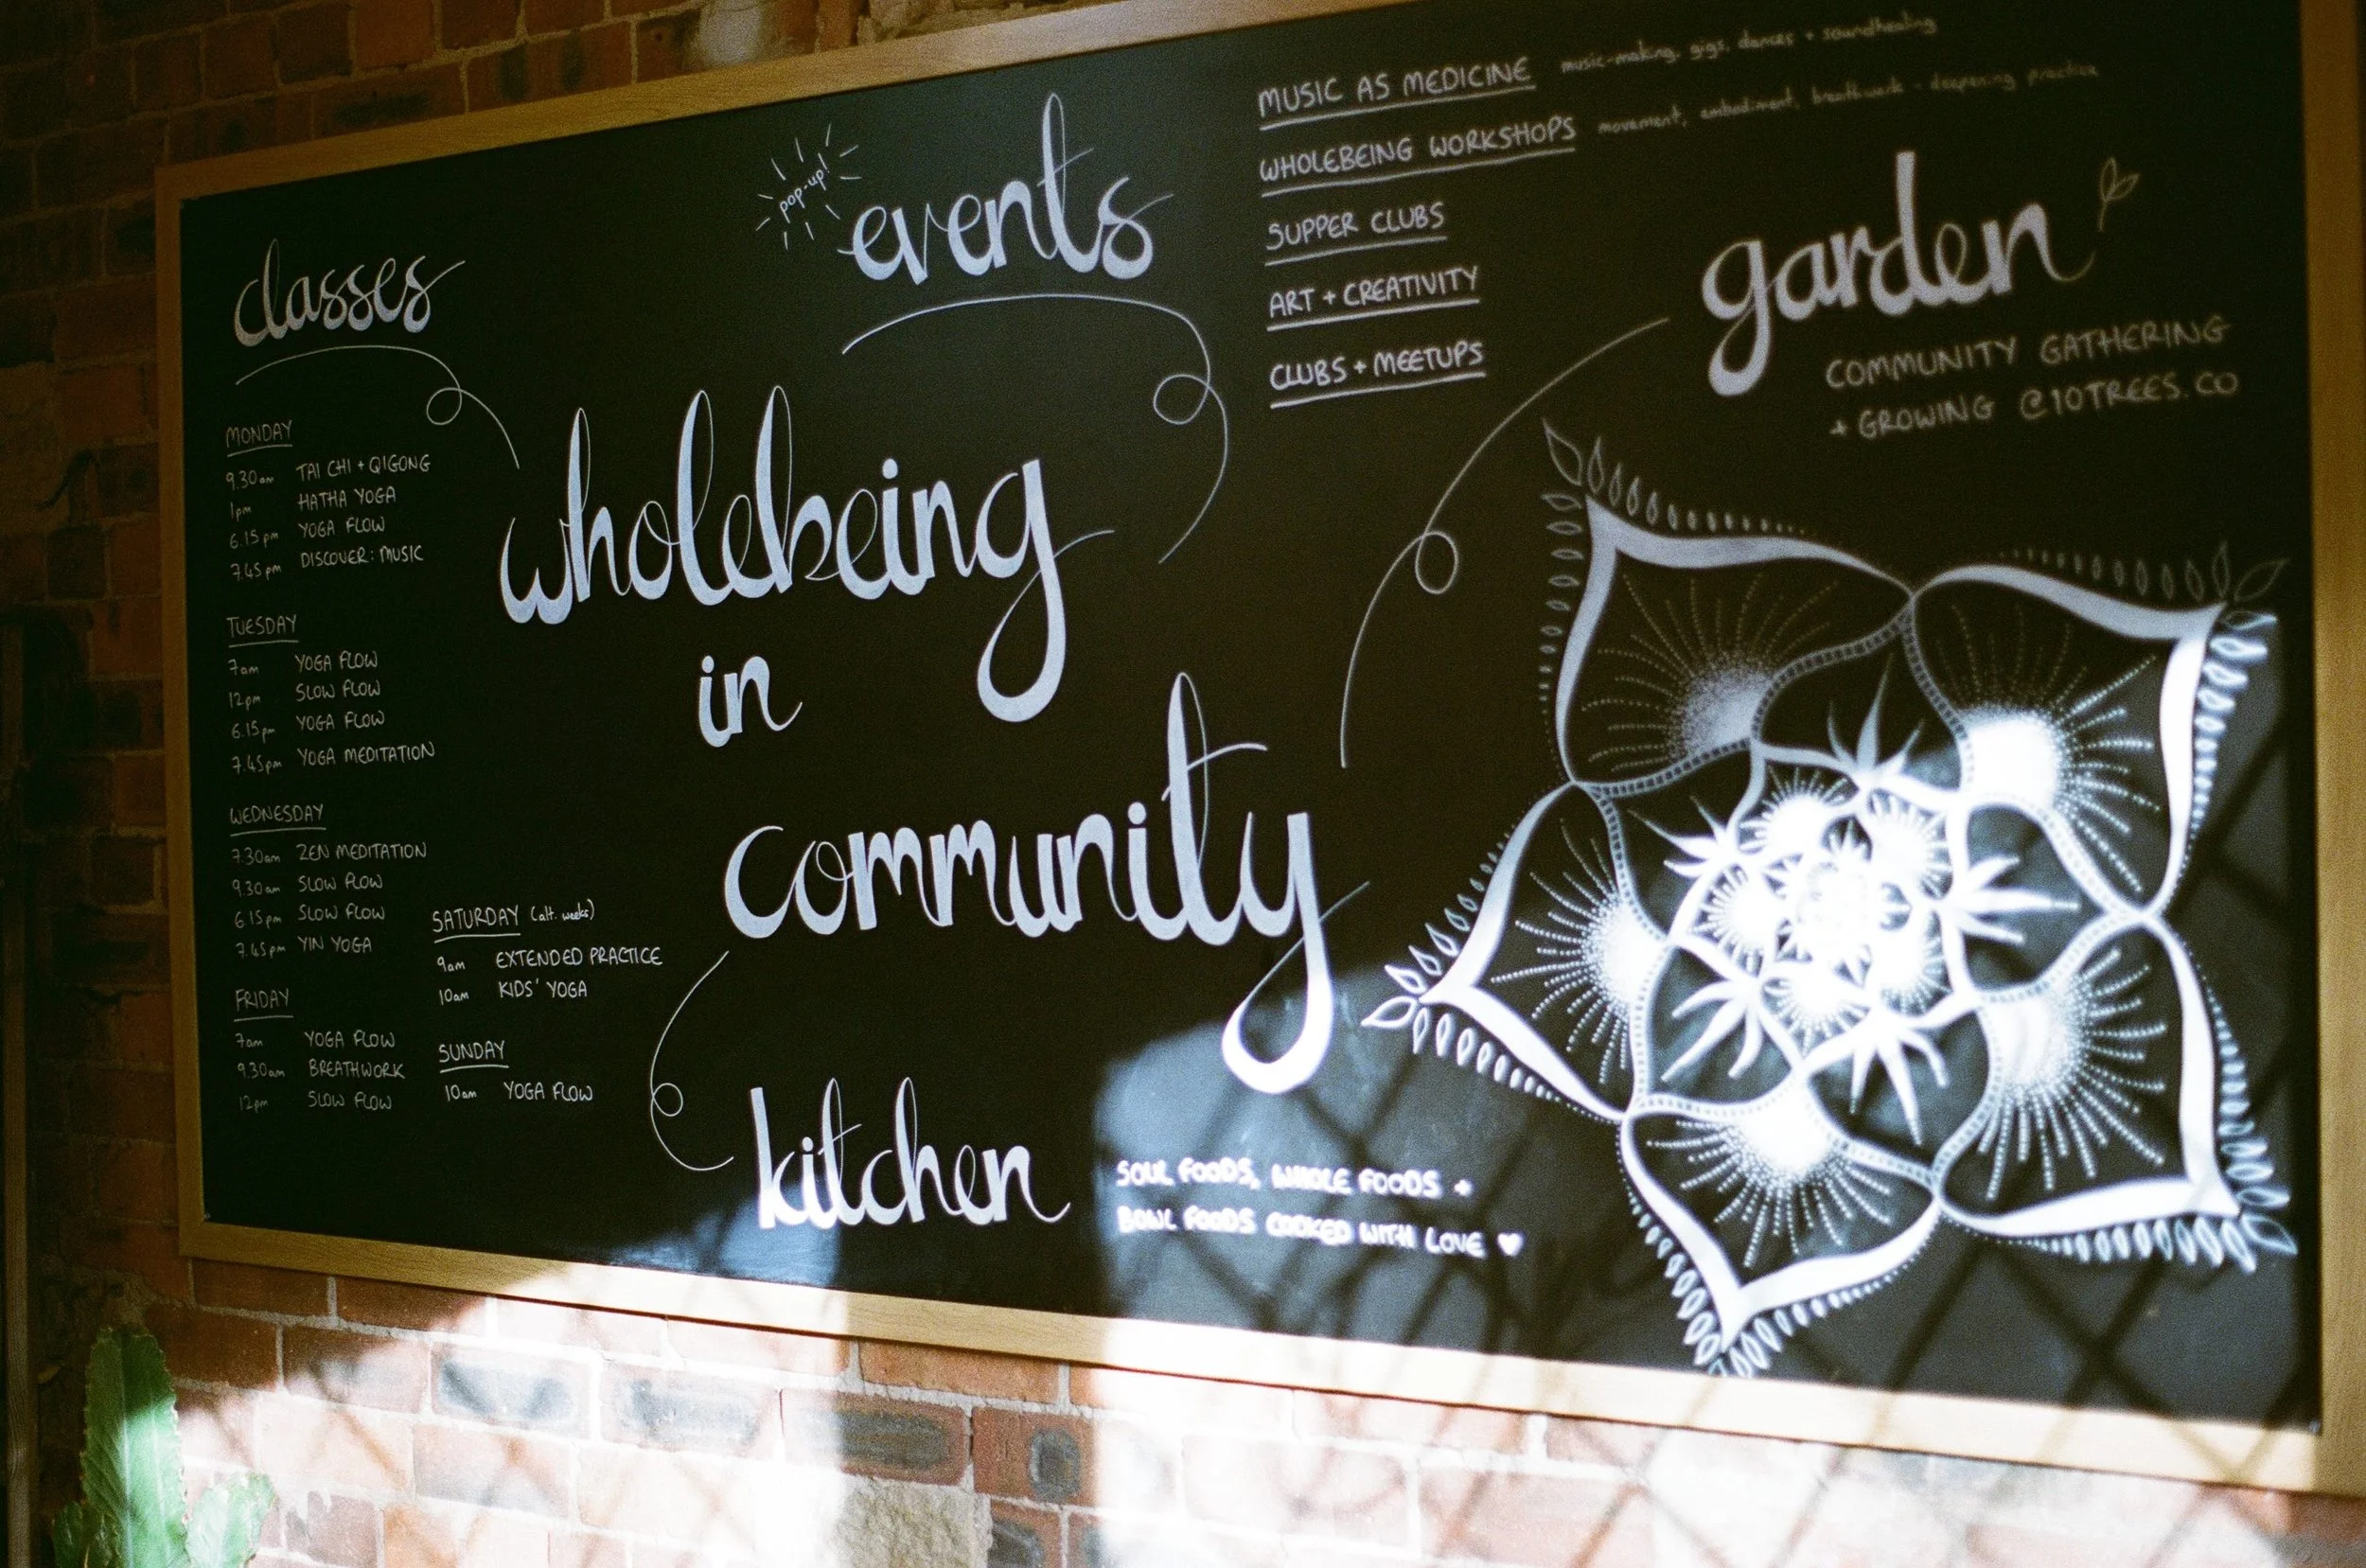 classes
MONDAY
9.30am TAI CHI + QIGONG
1pm HATHA YOGA
6.15pm YOGA FLOW
7.45pm DISCOVER: MUSIC
TUESDAY
7am YOGA FLOW
12pm SLOW FLOW
6.15pm YOGA FLOW
7.45pm YOGA MEDITATION
WEDNESDAY
7.30am ZEN MEDITATION
9.30am SLOW FLOW
6.15pm SLOW FLOW
7.45pm YIN YOGA
FRIDAY
7am YOGA FLOW
9.30am BREATHWORK
12pm SLOW FLOW
SATURDAY (alt. weeks)
9am EXTENDED PRACTICE
10am KIDS' YOGA
SUNDAY
10am YOGA FLOW
pop-up!
events
MUSIC AS MEDICINE music-making, gigs, dances + soundhealing
WHOLEBEING WORKSHOPS movement, embodiment, breathwork - deepening practice
SUPPER CLUBS
ART + CREATIVITY
CLUBS + MEETUPS
garden
COMMUNITY GATHERING
+ GROWING @10TREES.CO
wholebeing
in
community
kitchen
SOUL FOODS, WHOLE FOODS +
BOWL FOODS COOKED WITH LOVE ♥